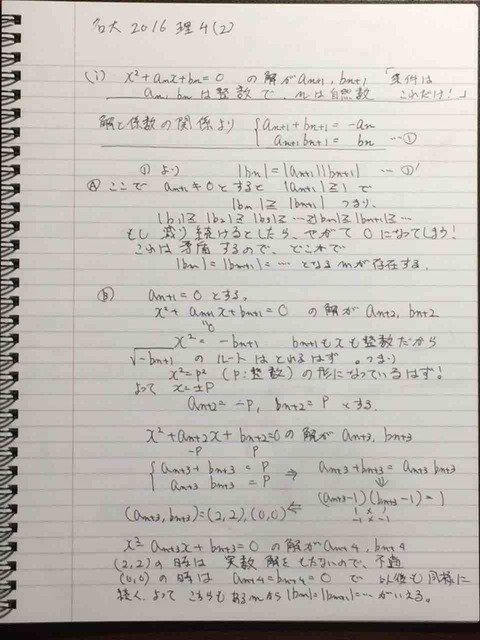 名大 2016 理4(2)
(i) x²+anx+bn=0 の解が an+1, bn+1 「条件は
an, bn は整数で、nは自然数 これだけ!」
解と係数の関係より { an+1+bn+1 = -an
an+1bn+1 = bn …①
①より |bn|=|an+1||bn+1| …①'
Ⓐ ここで an+1≠0とすると |an+1|≧1で
|bn|≧|bn+1| つまり、
|b1|≧|b2|≧|b3|≧…≧|bn|≧|bn+1|≧…
もし減り続けるとしたら、やがて0になってしまう!
これは矛盾するので、どこかで
|bm|=|bm+1|=… となるmが存在する。
Ⓑ an+1=0とする。
x²+an+1x+bn+1=0 の解が an+2, bn+2
0
x²=-bn+1 bn+1もxも整数だから
√-bn+1 のルートはとれるはず。つまり
x²=p² (p:整数)の形になっているはず!
よって x=±p
an+2=-p, bn+2=p とする.
x²+an+2x+bn+2=0の解が an+3, bn+3
-p p
{ an+3+bn+3=p
an+3bn+3=p ⇒ an+3+bn+3=an+3bn+3
⇓
(an+3, bn+3)=(2,2),(0,0) ⇐ (an+3-1)(bn+3-1)=1
1 × 1
-1 × -1
x²+an+3x+bn+3=0 の解が an+4, bn+4
(2,2)の時は 実数解をもたないので、不適
(0,0)の時は an+4=bn+4=0 で 以後も同様に
続く、よって こちらもあるmから|bm|=|bm+1|=…がいえる。